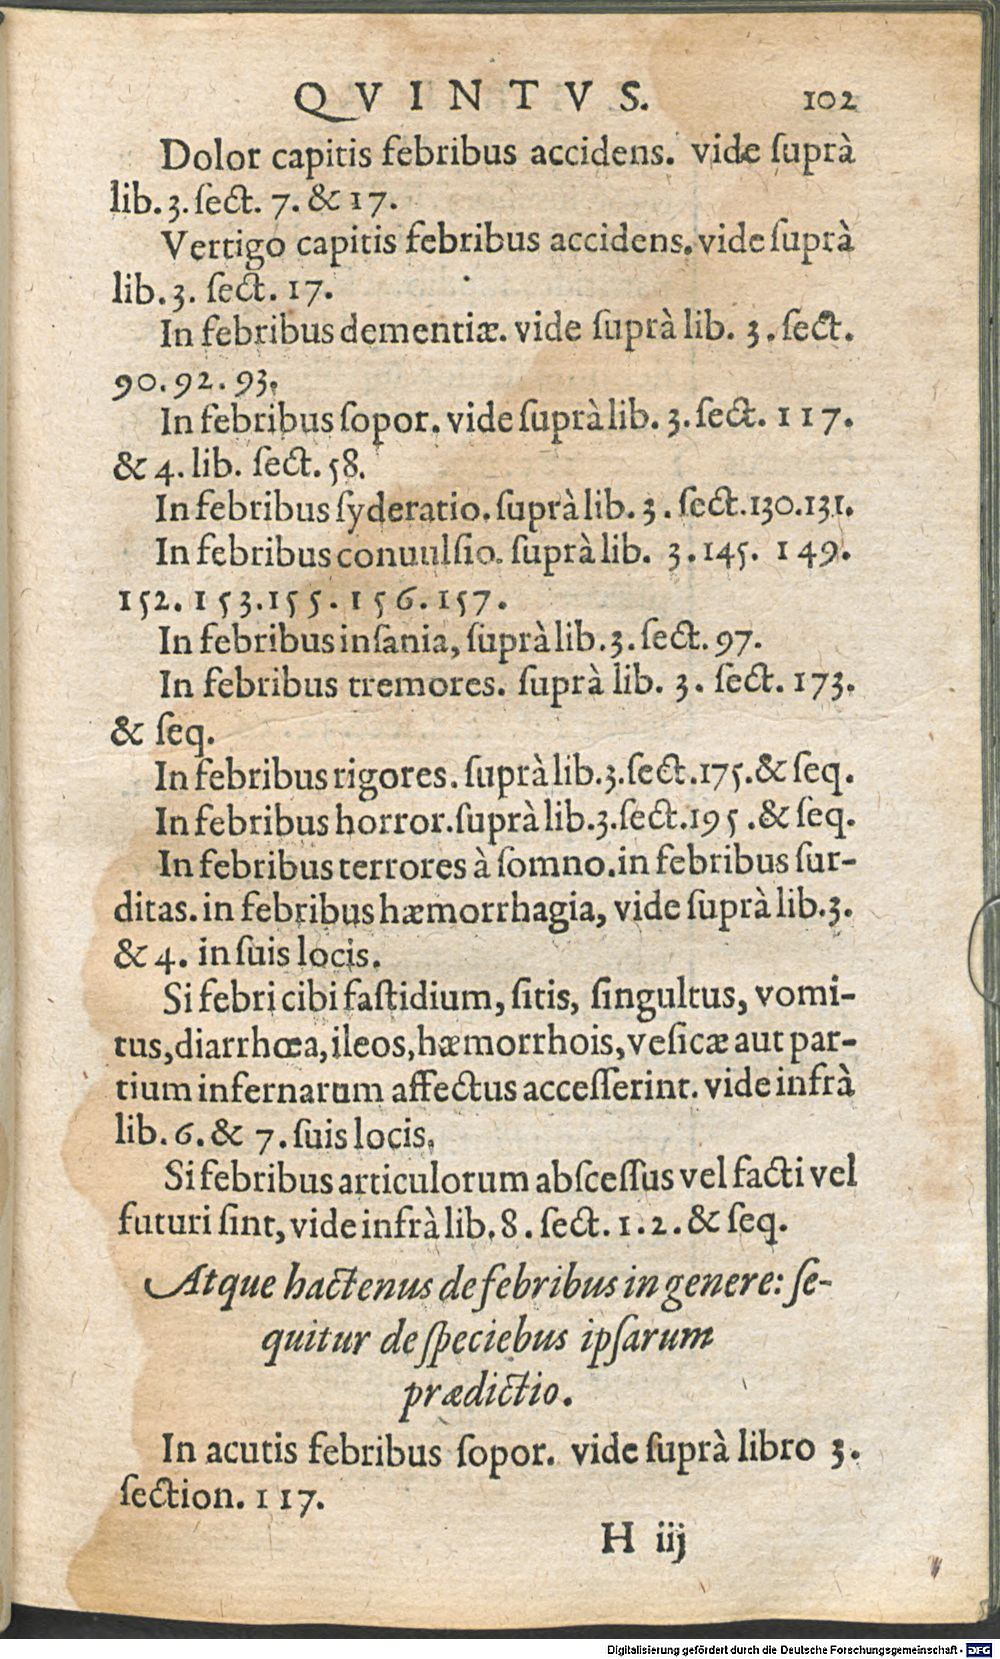 QVINTVS. 102
Dolor capitis febribus accidens. vide ſuprà
lib. 3. ſect. 7. & 17.
Vertigo capitis febribus accidens. vide ſuprà
lib. 3. ſect. 17.
In febribus dementiæ. vide ſuprà lib. 3. ſect.
90. 92. 93.
In febribus ſopor. vide ſuprà lib. 3. ſect. 117.
& 4. lib. ſect. 58.
In febribus ſyderatio. ſuprà lib. 3. ſect. 130. 131.
In febribus conuulſio. ſuprà lib. 3. 145. 149.
152. 153. 155. 156. 157.
In febribus inſania, ſuprà lib. 3. ſect. 97.
In febribus tremores. ſuprà lib. 3. ſect. 173.
& ſeq.
In febribus rigores. ſuprà lib. 3. ſect. 175. & ſeq.
In febribus horror. ſuprà lib. 3. ſect. 195. & ſeq.
In febribus terrores à ſomno. in febribus ſur-
ditas. in febribus hæmorrhagia, vide ſuprà lib. 3.
& 4. in ſuis locis.
Si febri cibi faſtidium, ſitis, ſingultus, vomi-
tus, diarrhœa, ileos, hæmorrhois, veſicæ aut par-
tium infernarum affectus acceſſerint. vide infrà
lib. 6. & 7. ſuis locis.
Si febribus articulorum abſceſſus vel facti vel
futuri ſint, vide infrà lib. 8. ſect. 1. 2. & ſeq.
Atque hactenus de febribus in genere: ſe-
quitur de ſpeciebus ipſarum
prædictio.
In acutis febribus ſopor. vide ſuprà libro 3.
ſection. 117.
H iij
Digitalisierung gefördert durch die Deutsche Forschungsgemeinschaft - DFG